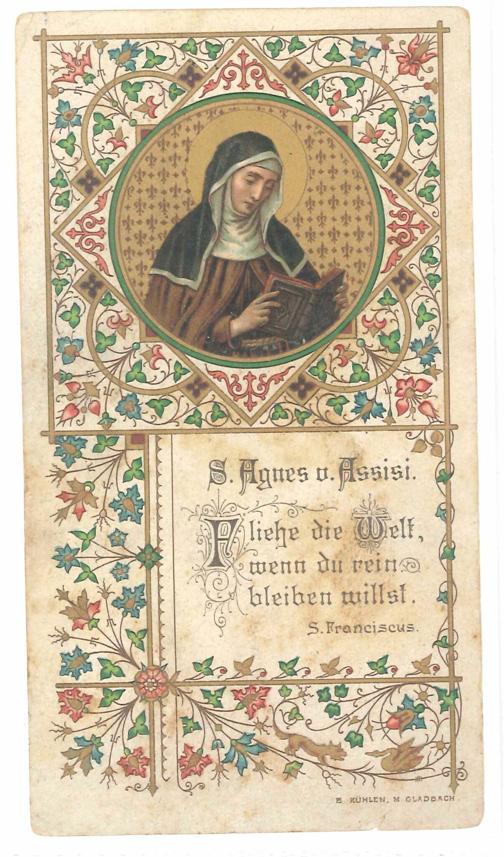 S. Agnes v. Assisi.
Fliehe die Welt,
wenn du rein
bleiben willst.
S. Franciscus.
B. KÜHLEN, M. GLADBACH.